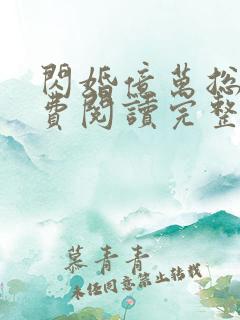 閃婚億萬総
費閱讀完整
慕青青
未经同意禁止转载